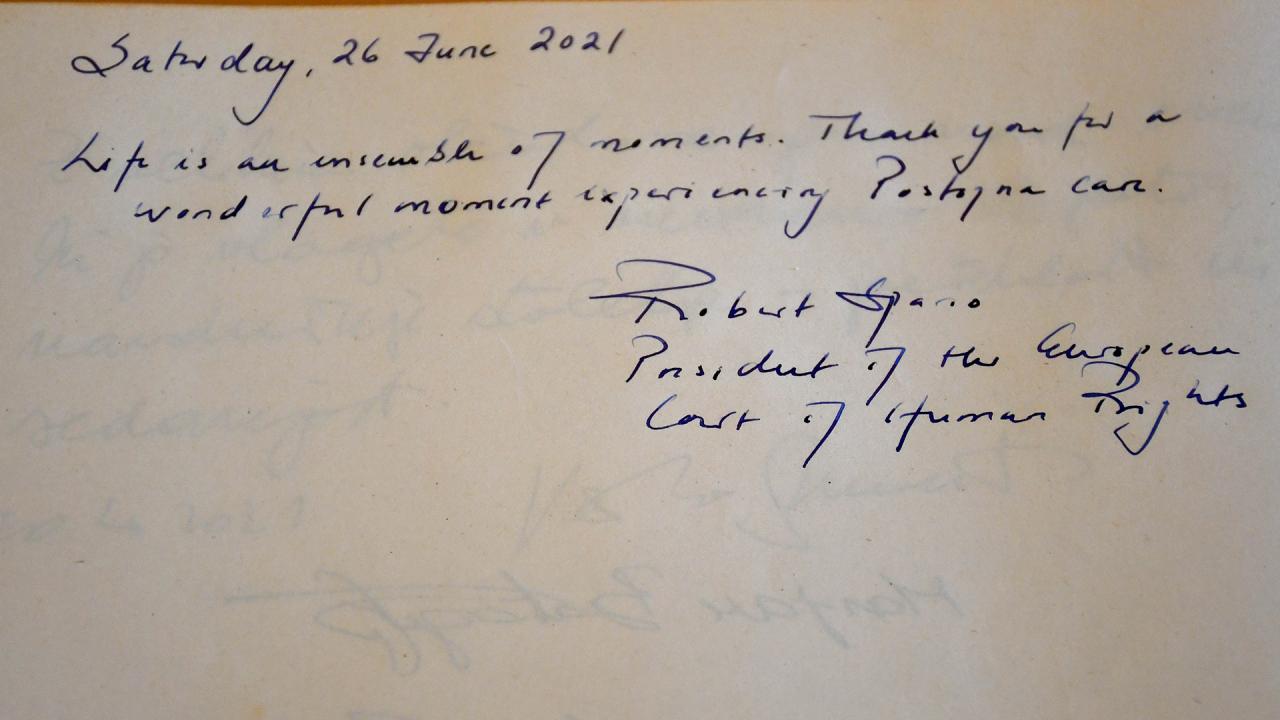 Saturday, 26 June 2021
Life is an ensemble of moments. Thank you for a
wonderful moment experiencing Postojna cave.
Robert Spano
President of the European
Court of Human Rights